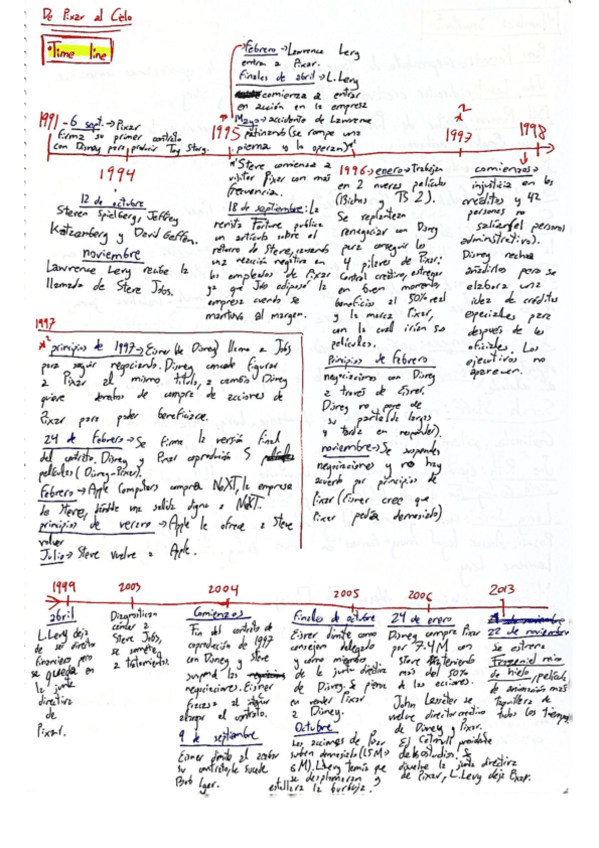 De Pixar al Cielo
*Time line
1991 - 6 sept. → Pixar
firma su primer contrato
con Disney para producir Toy Story.
1994
12 de octubre
Steven Spielberg, Jeffrey
Katzenberg y David Geffen.
noviembre
Lawrence Levy recibe la
llamada de Steve Jobs.
Febrero → Lawrence Levy
entra a Pixar.
Finales de abril → L. Levy
comienza a entrar
en acción en la empresa
Mayo → accidente de Lawrence
1995 patinando (se rompe una
pierna y lo operan)
*Steve comienza a
visitar Pixar con más
frecuencia.
18 de septiembre: La
revista Fortune publica
un artículo sobre el
retorno de Steve, causando
una reacción negativa en
los empleados de Pixar
ya que Jobs
empresa cuando se
mantuvo al margen.
1996 → enero → Trabajan
en 2 nuevas películas
(Bichos y TS 2).
Se replantean
renegociar con Disney
para conseguir los
4 pilares de Pixar:
Control creativo, estrenos
en buen momento,
beneficios al 50% real
y la marca Pixar,
con la cual irían sus
películas.
Principios de febrero
negociaciones con Disney
a través de Eisner.
Disney no pone de
su parte (da largas
y tarda en responder).
noviembre → Se suspenden
negociaciones y no hay
acuerdo por principios de
Pixar (Eisner cree que
Pixar pedía demasiado)
x²
1997
1998
comienzos →
injusticia en los
créditos y 42
personas no
salían (el personal
administrativo).
Disney rechaza
añadirlos pero se
elabora una
idea de créditos
especiales para
después de los
oficiales. Los
ejecutivos no
aparecen.
1997
x² principios de 1997 → Eisner (de Disney) llama a Jobs
para seguir negociando. Disney concede figurar
a Pixar al mismo título, a cambio Disney
quiere derechos de compra de acciones de
Pixar para poder beneficiarse.
24 de febrero → Se firma la versión final
del contrato. Disney y Pixar coproducían 5
películas (Disney-Pixar).
Febrero → Apple Computers compra NeXT, la empresa
de Steve, dándole una salida digna a NeXT.
principios de verano → Apple le ofrece a Steve
volver
Julio → Steve vuelve a Apple.
1999
abril
L. Levy deja
de ser director
financiero pero
se queda en
la junta
directiva
de
Pixar.
2003
Diagnostican
cáncer a
Steve Jobs,
se somete
a tratamiento.
2004
Comienzos
Fin del contrato de
coproducción de 1997
con Disney y Steve
suspende las
negociaciones. Eisner
fracasa al
el contrato.
9 de septiembre
Eisner dimite al acabar
su contrato, le sucede
Bob Iger.
2005
Finales de octubre
Eisner dimite como
consejero delegado
y como miembro
de la junta directiva
de Disney. Se piensa
en vender Pixar
a Disney.
Octubre
Las acciones de Pixar
suben demasiado (1.5M →
6M), L. Levy temía que
se desplomaran y
estallara la burbuja.
2006
24 de enero
Disney compra Pixar
por 7.4M con
Steve manteniendo
más del 50%
de las acciones.
John Lasseter se
vuelve director creativo
de Disney y Pixar.
Ed Catmull presidente
de los estudios. Se
disuelve la junta directiva
de Pixar, L. Levy deja Pixar.
2013
22 de noviembre
se estrena
Frozen: el reino
de hielo, película
de animación más
taquillera de
todos los tiempos